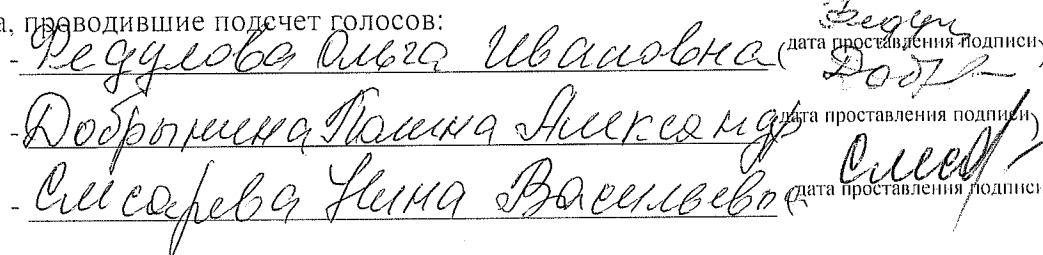 а, проводившие подсчет голосов:
- Федулова Ольга Ивановна (дата проставления подписи)
- Добрынина Полина Александр дата проставления подписи)
- Слесарева Нина Васильевна (дата проставления подписи